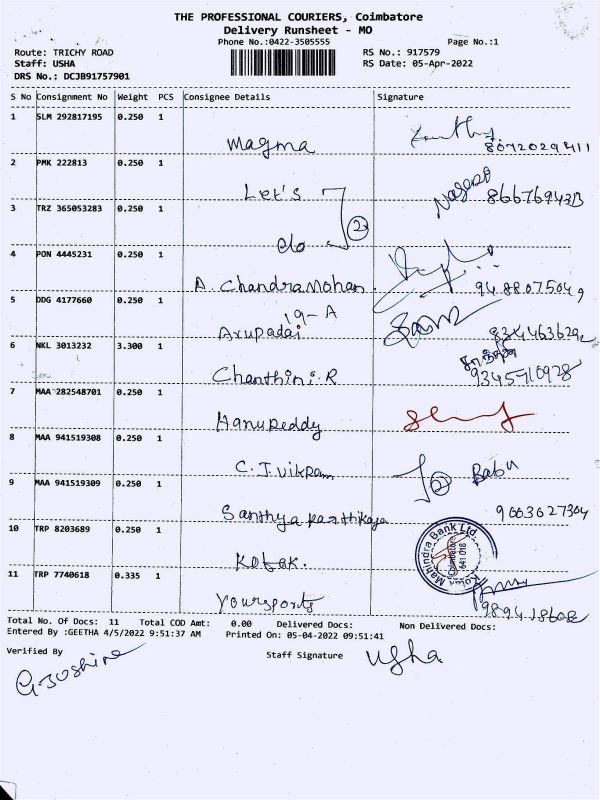 THE PROFESSIONAL COURIERS, Coimbatore
Delivery Runsheet - MO
Phone No.:0422-3505555
Page No.:1
Route: TRICHY ROAD
RS No.: 917579
Staff: USHA
RS Date: 05-Apr-2022
DRS No.: DCJB91757901
S No Consignment No Weight PCS Consignee Details Signature
1 SLM 292817195 0.250 1
Magma
8072029411
2 PMK 222813 0.250 1
Let's
Nagesh 866769430
3 TRZ 365053283 0.250 1
do 2
4 PON 4445231 0.250 1
A. Chandramohan 9488075049
5 DDG 4177660 0.250 1
19-A
Arupadai
6 NKL 3013232 3.300 1
Chanthini.R 9345910928
7 MAA 282548701 0.250 1
Hanureddy
8 MAA 941519308 0.250 1
C.J.Vikram 2 Babu
9 MAA 941519309 0.250 1
Santhya 9003027304
10 TRP 8203689 0.250 1
Kotak. Mahindra Bank Ltd. Coimbatore 641 018
11 TRP 7740618 0.335 1
Yoursports
Total No. Of Docs: 11 Total COD Amt: 0.00 Delivered Docs: Non Delivered Docs:
Entered By :GEETHA 4/5/2022 9:51:37 AM Printed On: 05-04-2022 09:51:41
Verified By Staff Signature Usha
G.Joshine